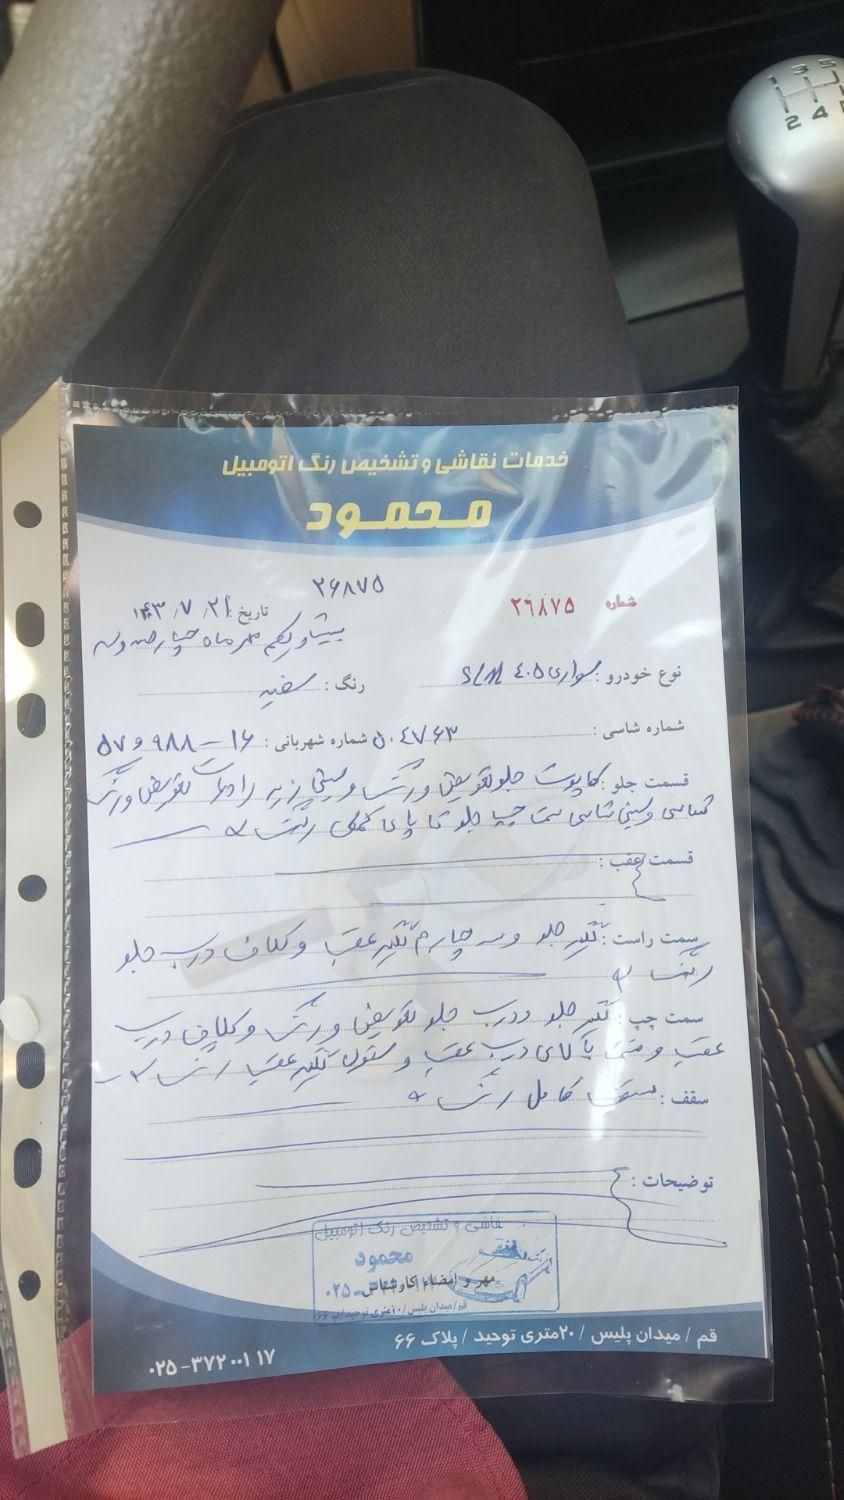 خدمات نقاشی و تشخیص رنگ اتومبیل
محمود
۲۶۸۷۵
شماره ۲۶۸۷۵
تاریخ : ۱۴۰۳/۷/۲۱
بیست و یکم مهر ماه چهارصد و سه
نوع خودرو : سواری ۴۰۵ SLX
رنگ : سفید
شماره شاسی : ۵۰۴۷۶۳
شماره شهربانی : ۱۶ – ۹۸۸ و ۵۷
قسمت جلو : کاپوت جلو تعویض و رنگ و سینی زیر رادیات تعویض و رنگ
شاسی و سینی شاسی سمت چپ جلو تا پای کمکی رنگ
قسمت عقب :
سمت راست : گلگیر جلو و سه چهارم گلگیر عقب و کلاف درب جلو
رنگ
سمت چپ : گلگیر جلو و درب جلو تعویض و رنگ و کلاف درب
عقب و قسمت بالای درب عقب و ستون گلگیر عقب رنگ
سقف : سقف کامل رنگ
توضیحات :
نقاشی و تشخیص رنگ اتومبیل
محمود
مهر و امضاء کارشناس
قم / میدان پلیس / ۲۰متری توحید / پلاک ۶۶
۰۲۵-۳۷۲۰۰۱۱۷
۱ 3 5
2 4